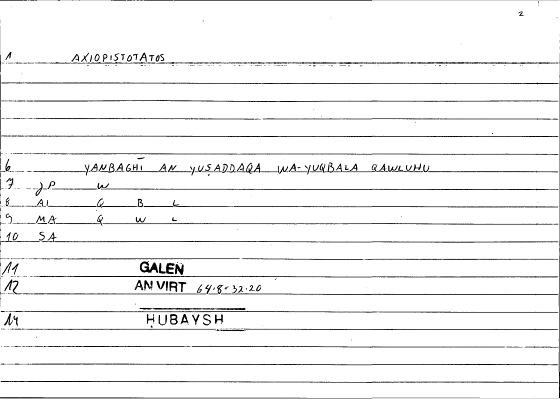 2
1 AXIOPISTOTATOS
6 YANBAGHĪ AN YUṢADDAQA WA-YUQBALA QAWLUHU
7 JP W
8 AI Q B L
9 MA Q W L
10 SA
11 GALEN
12 AN VIRT 64.8=32.20
14 ḤUBAYSH